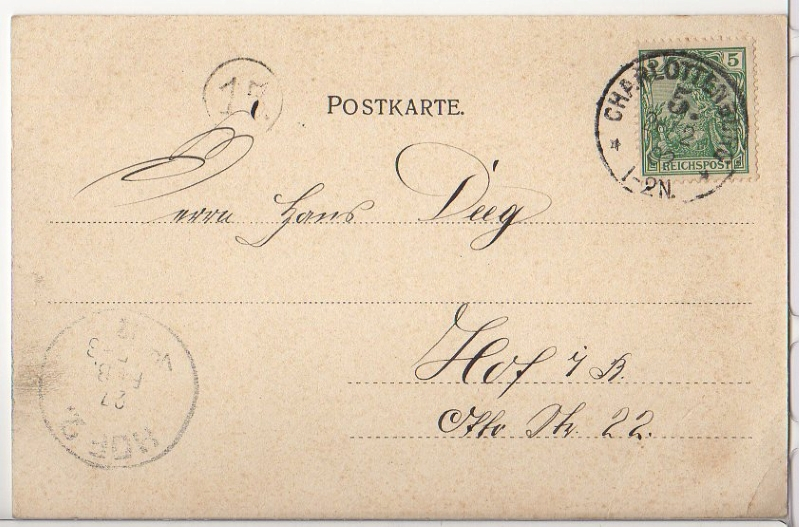 17.
POSTKARTE.
5
CHARLOTTENBURG
5.
2
REICHSPOST
1-2N.
Herrn Hans Dieg
Hof i/B.
Otto Str. 22.
HOF 2.
27
FEB.